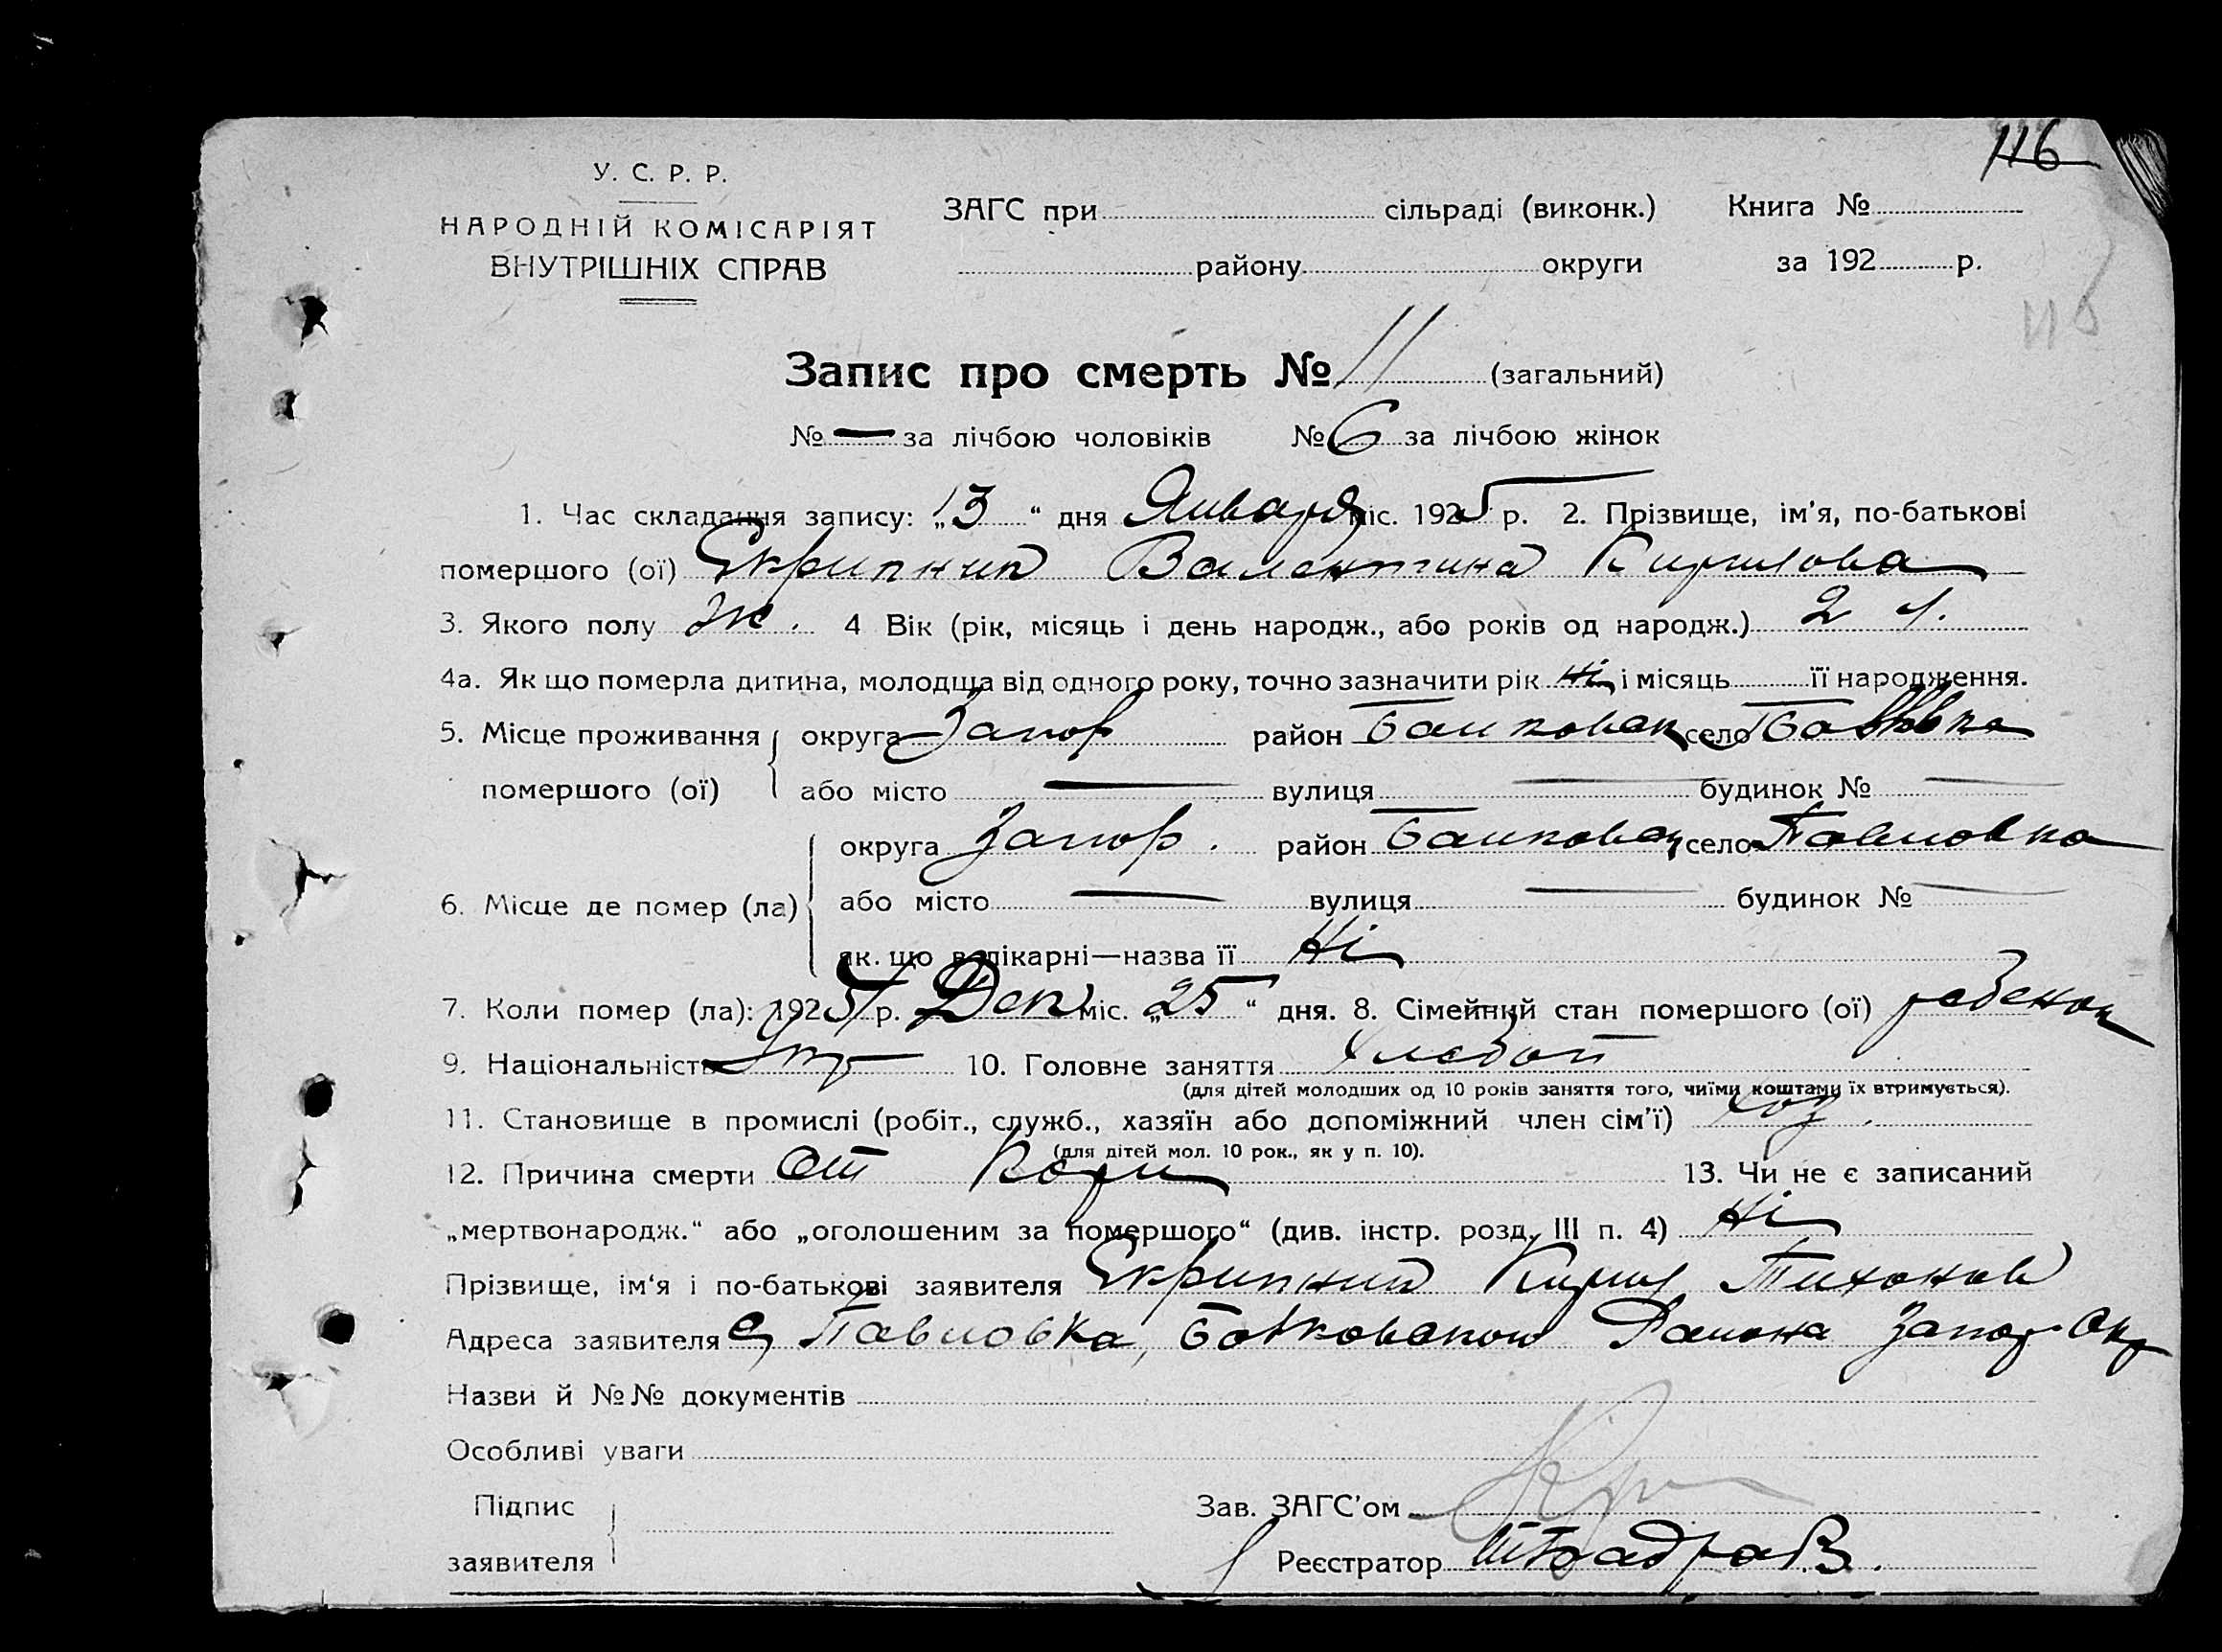 116
У. С. Р. Р.
НАРОДНІЙ КОМІСАРІЯТ
ВНУТРІШНІХ СПРАВ
ЗАГС при сільраді (виконк.) Книга №
району округи за 192 р.
116
Запис про смерть № 11 (загальний)
№ — за лічбою чоловіків № 6 за лічбою жінок
1. Час складання запису: „13“ дня Января міс. 1925 р. 2. Прізвище, ім'я, по-батькові
помершого (ої) Скрипник Валентина Кирилова
3. Якого полу Ж. 4 Вік (рік, місяць і день народж., або років од народж.) 2 г.
4а. Як що померла дитина, молодща від одного року, точно зазначити рік Ні і місяць її народження.
5. Місце проживання округа Запор район село
помершого (ої) або місто — вулиця — будинок № —
округа Запор. район село Павловка
6. Місце де помер (ла) або місто — вулиця — будинок № —
як що в лікарні—назва її Ні
7. Коли помер (ла): 192 р. Дек міс. „25“ дня. 8. Сімейний стан помершого (ої) ребенок
9. Національність Укр 10. Головне заняття Хлебоп
(для дітей молодших од 10 років заняття того, чиїми коштами їх втримується).
11. Становище в промислі (робіт., служб., хазяїн або допоміжний член сім'ї) хоз.
(для дітей мол. 10 рок., як у п. 10).
12. Причина смерти От Кори 13. Чи не є записаний
„мертвонародж.“ або „оголошеним за помершого“ (див. інстр. розд. III п. 4) Ні
Прізвище, ім'я і по-батькові заявителя Скрипник Кирил Тихонов
Адреса заявителя с. Павловка, Района Запор Окр
Назви й №№ документів
Особливі уваги
Підпис
заявителя
Зав. ЗАГС'ом
Реєстратор